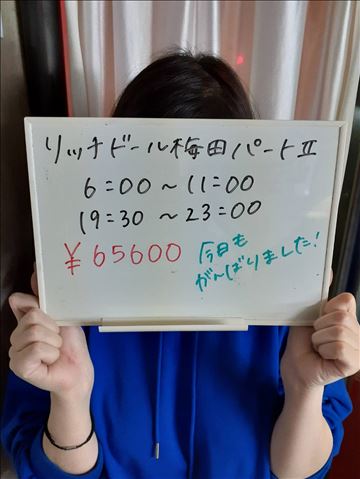 リッチドール梅田パートⅡ
6:00~11:00
19:30~23:00
¥65600
今日も
がんばりました!